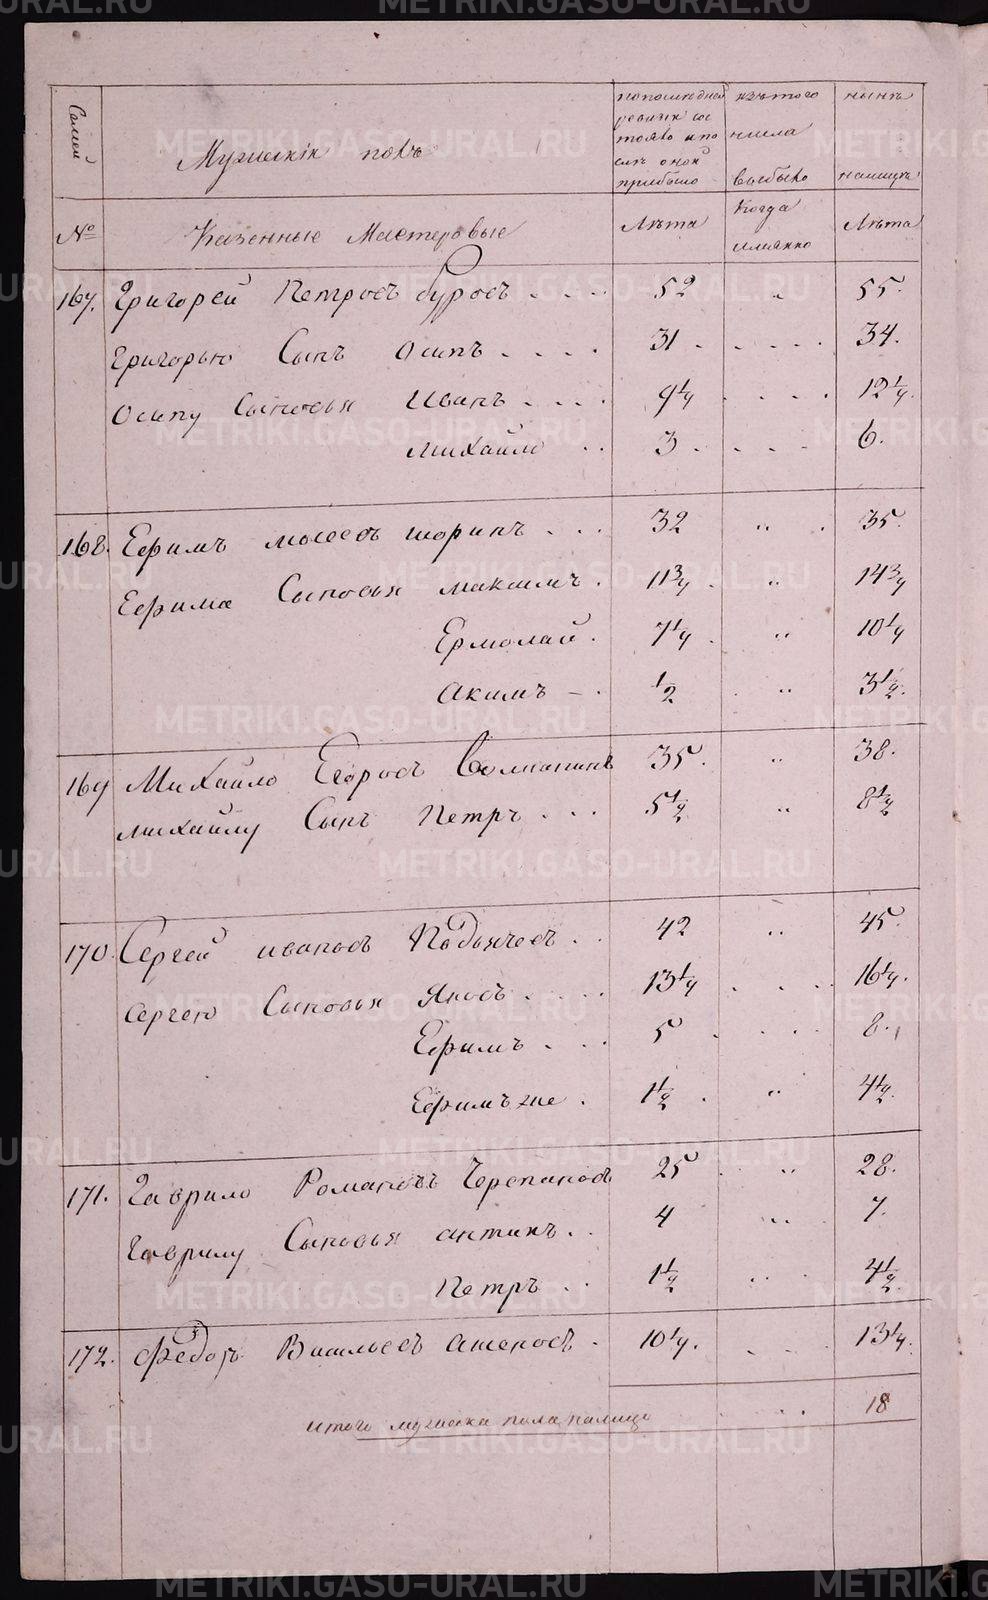 Семей
Мужескій полъ
по последней ревизіи состояло и после оной прибыло
изъ того числа выбыло
ныне на лицо
№
Казенные Мастеровые
Лѣта
Когда именно
Лѣта
167. Григорей Петровъ Буровъ . . . . 52 „ 55.
Григорью Сынъ Осипъ . . . . 31 . . . . . 34.
Осипу Сыновья Иванъ . . . . 9 1/4 . . . . 12 1/4.
Михайло . . 3 . . . . 6.
168. Ефимъ Мосеевъ Шоринъ . . . 32 „ . 35.
Ефима Сыновья Максимъ . 11 3/4 . „ 14 3/4
Ермолай . 7 1/4 . „ 10 1/4
Акимъ – . 1/2 . „ 3 1/2.
169 Михайло Егоровъ 35. „ 38.
Михайлу Сынъ Петръ . . . 5 1/2 „ 8 1/2
170. Сергей Ивановъ Подъячевъ . . 42 „ 45.
Сергею Сыновья Яковъ . . . . 13 1/4 . . . . 16 1/4.
Ефимъ . . . 5 . . . . 8.
Ефимъ же . 1 1/2 . „ 4 1/2.
171. Гаврило Романовъ Черепановъ 25 . „ 28.
Гаврилу Сыновья Антипъ . . 4 „ . 7.
Петръ . . 1 1/2 . . . 4 1/2.
172. Федоръ Васильевъ . 10 1/4. . . . 13 1/4.
итого мужеска пола налицо . . 18
METRIKI.GASO-URAL.RU